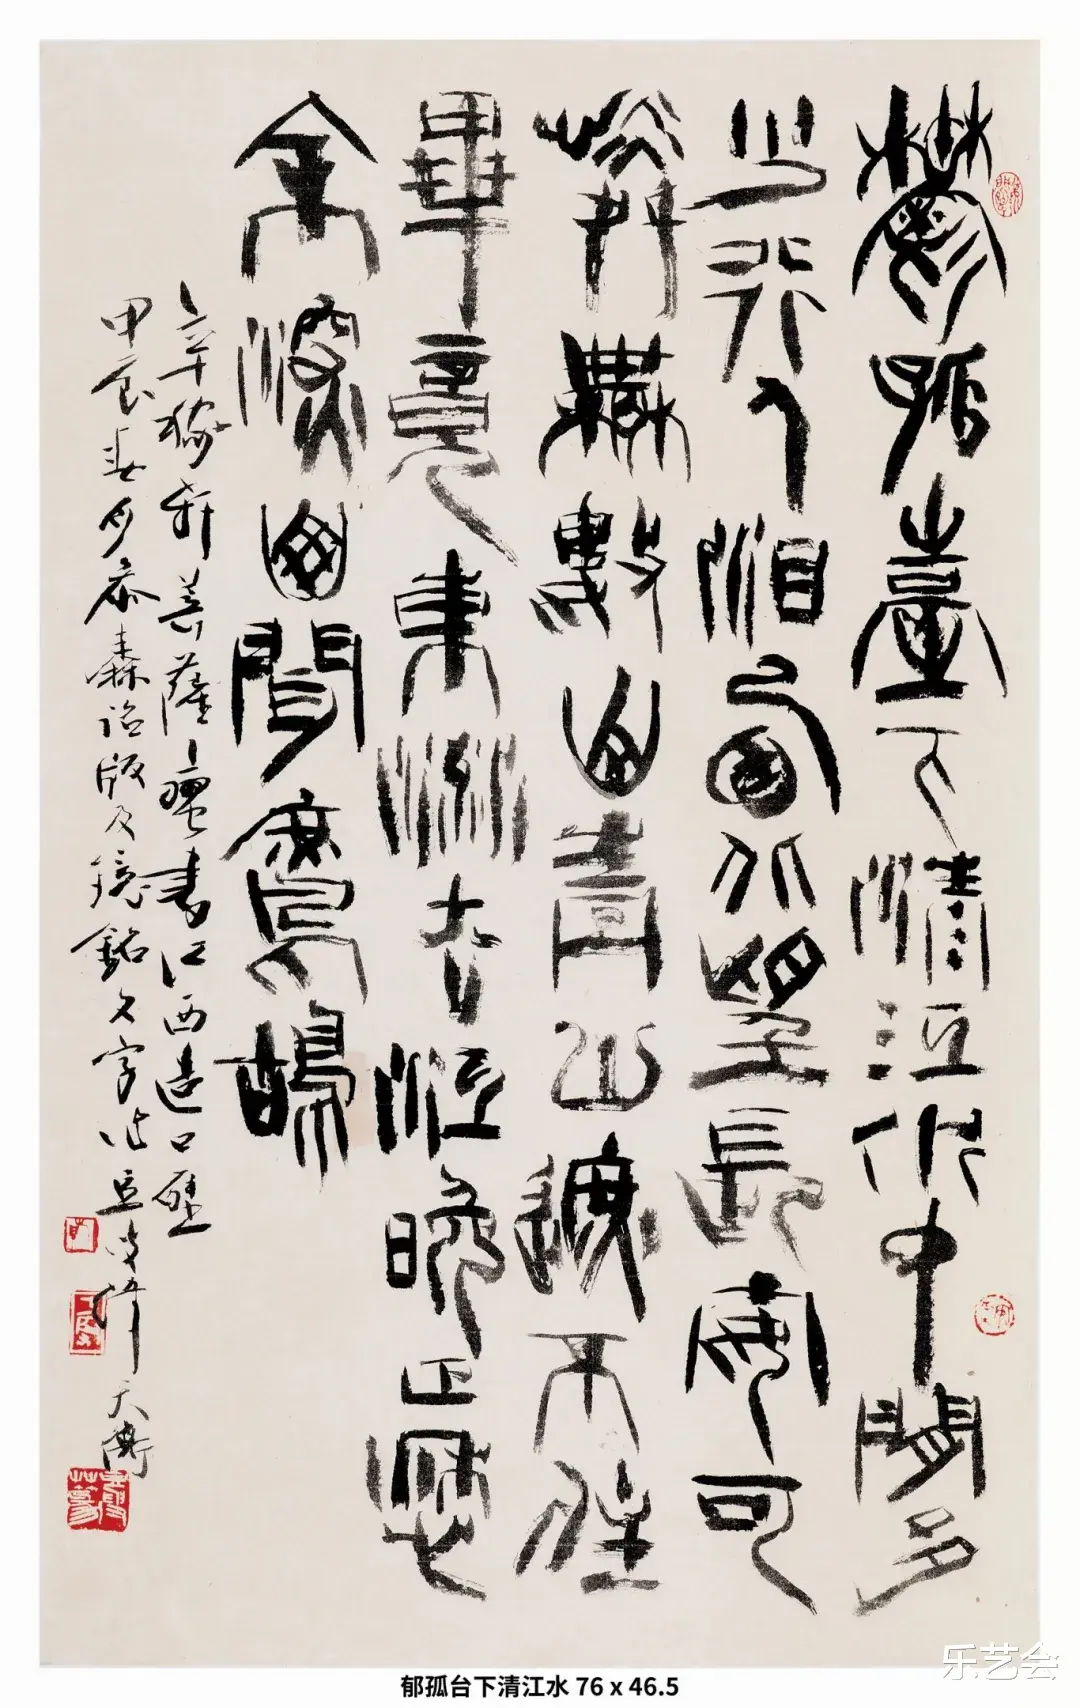 鬱孤臺下清江水中間多
少行人淚西北望長安可
憐無數山青山遮不住
畢竟東流去江晚正愁
余深山聞鷓鴣
辛稼軒菩薩蠻書江西造口壁
甲辰春夕參秦詔版及鏡銘文字 天衡
郁孤台下清江水 76 x 46.5
乐艺会